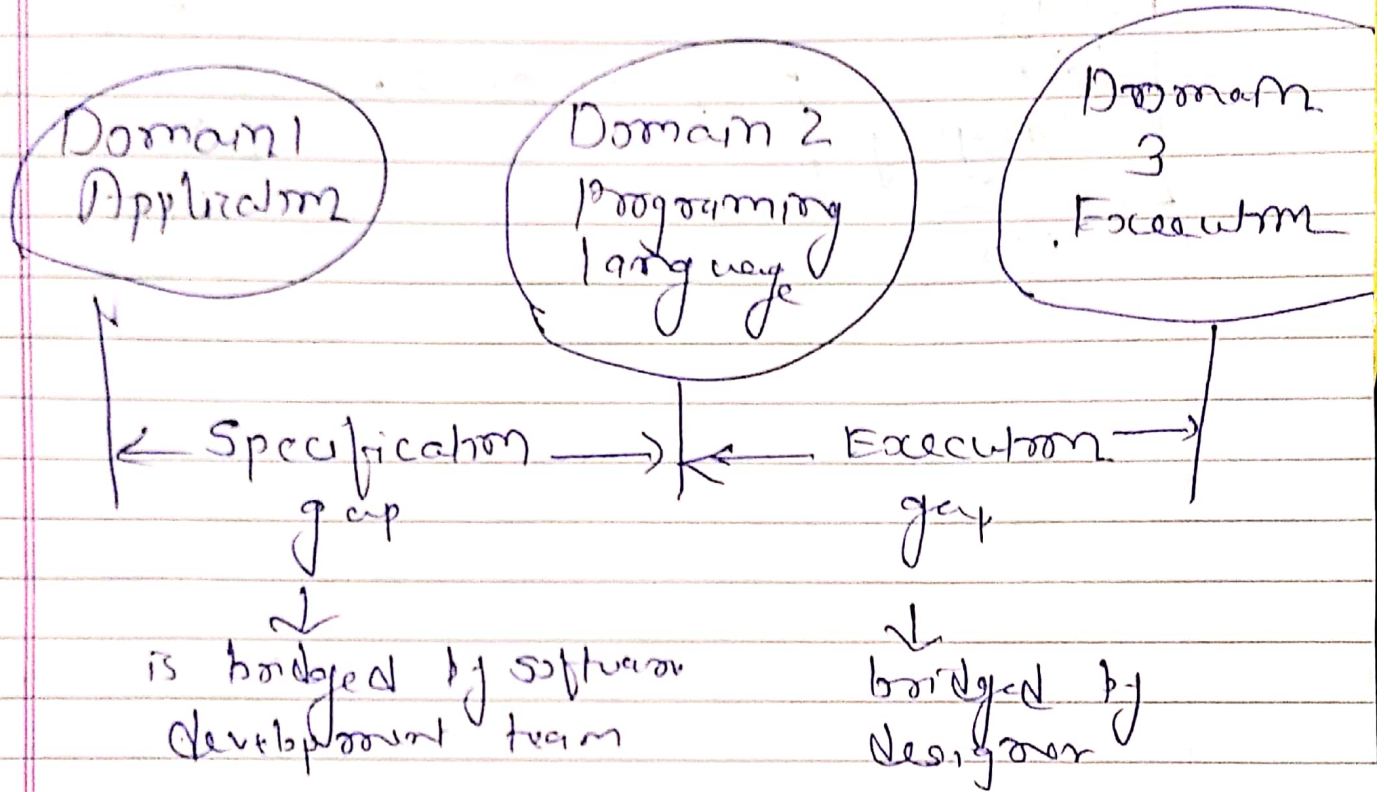 Domain 1
Application
Domain 2
Programing
language
Domain
3
Execution
Specification
gap
Execution
gap
is bridged by software
development team
bridged by
designer